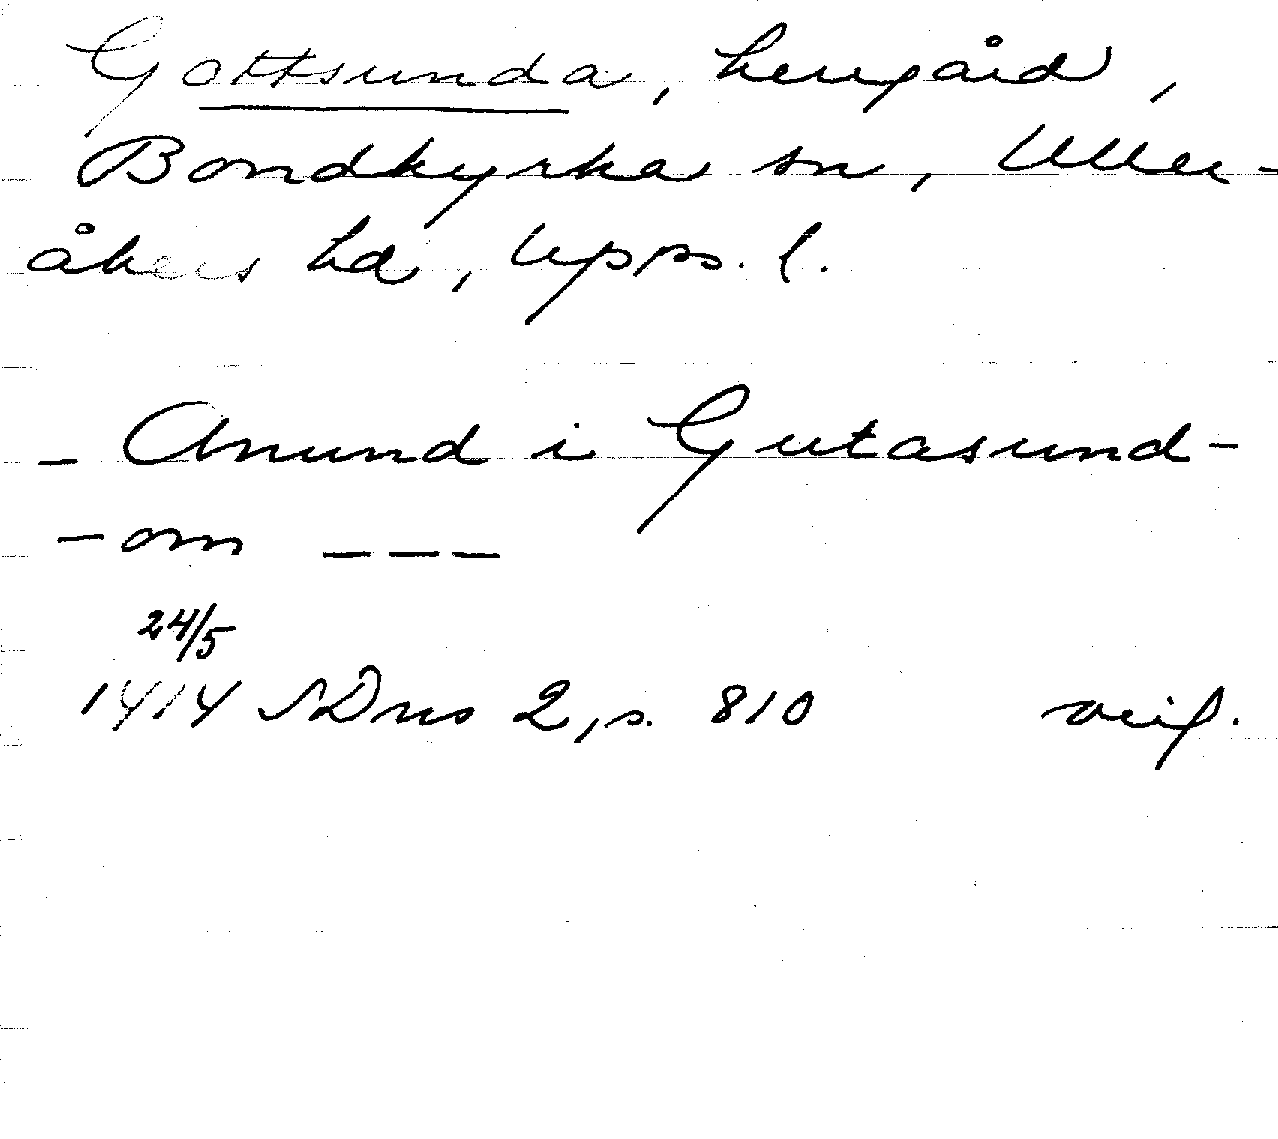 Gottsunda, herrgård,
Bondkyrka sn, Uller-
åkers hd, Upps. l.
- Anund i Gutasund-
- om ---
24/5
1414 SDns 2, s. 810 avif.